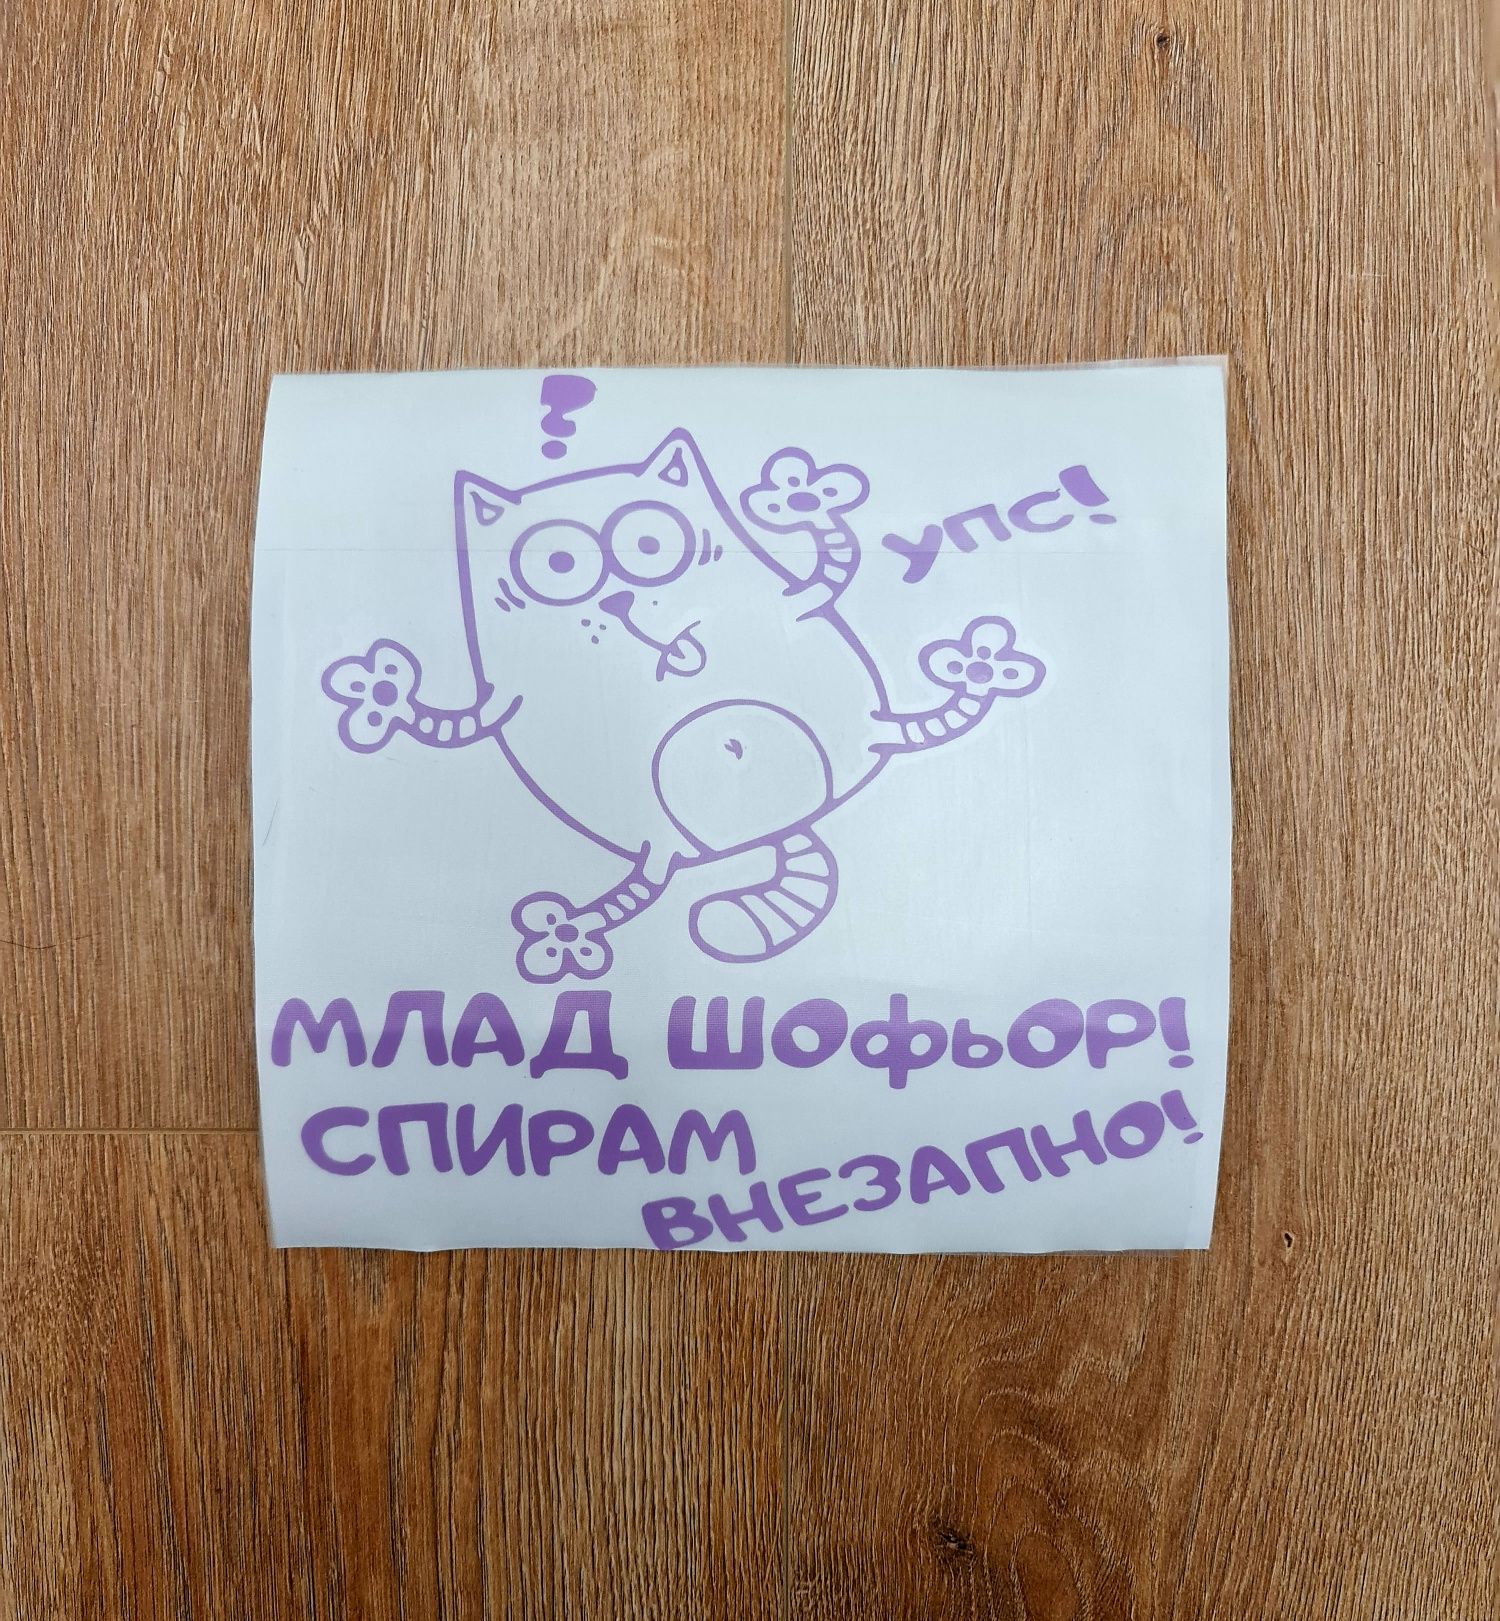 ?
УПС!
МЛАД ШОФЬОР!
СПИРАМ
ВНЕЗАПНО!